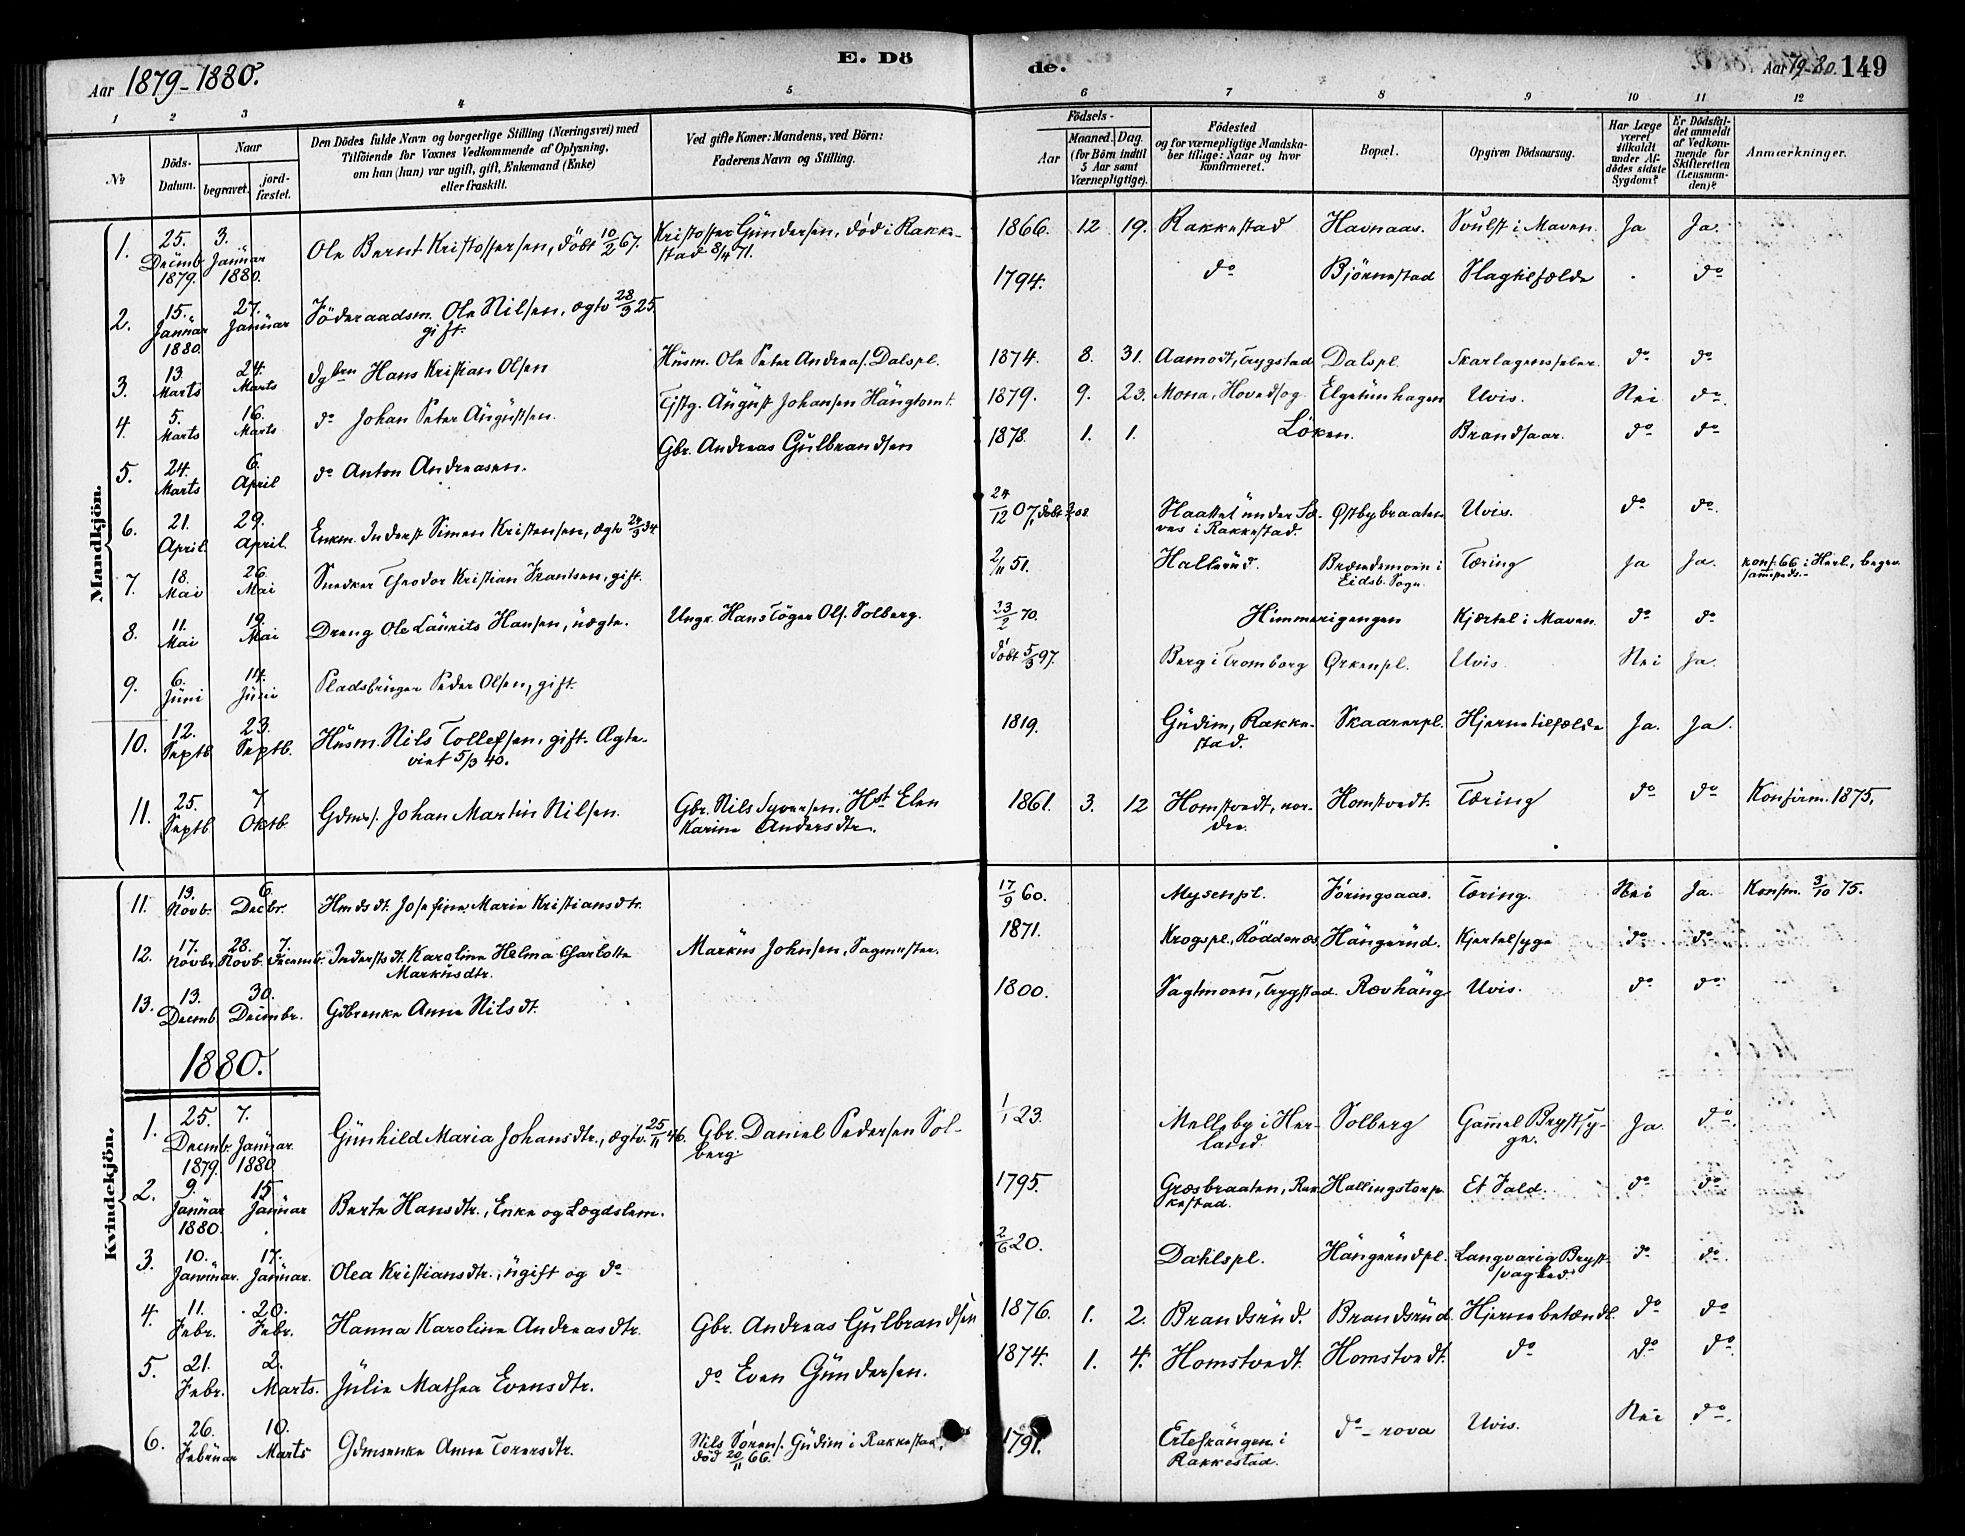 E. Dö
de.
Aar 1879-1880.
Aar 79-80. 149
1 2 3 4 5 6 7 8 9 10 11 12
№
Döds-
Datum.
Naar
begravet.
jord-
fæstet.
Den Dödes fulde Navn og borgerlige Stilling (Næringsvei) med
Tilföiende for Voxnes Vedkommende af Oplysning,
om han (hun) var ugift, gift, Enkemand (Enke)
eller fraskilt.
Ved gifte Koner: Mandens, ved Börn:
Faderens Navn og Stilling.
Födsels-
Aar
Maaned.
Dag.
(for Börn indtil
5 Aar samt
Værnepligtige).
Födested
og for værnepligtige Mandska-
ber tillige: Naar og hvor
konfirmeret.
Bopæl.
Opgiven Dödsaarsag.
Har Læge
været
tilkaldt
under Af-
dödes sidste
Sygdom?
Er Dödsfal-
det anmeldt
af Vedkom-
mende for
Skifteretten
(Lensman-
den)?
Anmærkninger.
Mandkjön.
1. 25. Decemb. 1879. 3. Januar 1880. Ole Bernt Kristoffersen, döbt 10/2 67. Kristoffer Gundersen, död i Rakke-
stad 8/4 71. 1866. 12. 19. Rakkestad Havnaas. Svulst i Maven. Ja Ja.
2. 15. Januar 1880. 27. Januar Föderaadsm. Ole Nilsen, ægtv. 28/3 25.
gift. 1794. do Björnestad Slagtilfælde do
3. 13 Marts 24. Marts Dgbrn Hans Kristian Olsen Husm. Ole Peter Andreas. Dalspl. 1874. 8. 31. Aamodt, Trygstad Dalspl. Skarlagensfeber. do do
4. 5. Marts 16. Marts do Johan Peter Augustsen. Tjstg. August Johansen Hangtomt. 1879. 9. 23. Mona, Hovedsog. Elgetunhagen Uvis. Nei do
5. 24. Marts 6. April do Anton Andreasen. Gbr. Andreas Gulbrandsen 1878. 1. 1. Löken. Brandsaar. do do
6. 21. April. 29. April. Enkm. Inderst Simen Kristensen, ægtv. 24/3 34. 24/12 07, döbt 08 Slaattet under
i Rakkestad. Østbybraaten Uvis. do do
7. 18. Mai 26. Mai Snedker Theodor Kristian Frantsen, gift. 2/11 51. Hallerud. Brændemoen i
Eidsb. Sogn. Tæring Ja Ja. konf. 66 i Herl., begrv.
sammesteds.
8. 11. Mai 19. Mai Dreng Ole Laurits Hansen, uægte. Ungk. Hans Töger Ols. Solberg. 23/2 70. Himmerigengen Kjærtel i Maven. do do
9. 6. Juni 14. Juni Pladsbruger Peder Olsen, gift. döbt 5/3 97. Berg i Tromborg Ørkenpl. Uvis Nei Ja.
10. 12. Septb. 23. Septb. Husm. Nils Tollefsen, gift. Ægte-
viet 5/3 40. 1819. Gudim, Rakke-
stad. Skaarerpl. Hjernetilfælde Ja. Ja.
11. 25. Septb. 7 Oktb. Gdms. Johan Martin Nilsen. Gbr. Nils Syversen, Hst Elen
Karine Andersdtr. 1861. 3. 12 Homstvedt, nor-
dre. Homstvedt. Tæring do do Konfirm. 1875.
11. 19. Novb. 6. Decbr. Hmdsdt. Josefine Marie Kristiansdtr. 17/9 60. Mysenpl. Föringsaas. Tæring. Nei Ja. Konfirm. 3/10 75.
12. 17. Novbr. 28. Novb. 7. Decemb. Inderstsdt. Karoline Helma Charlotte
Markusdtr. Markus Johnsen, Sagmester. 1871. Krogspl., Röddenæs Hangerud. Kjertelsyge do do
13. 13. Decemb. 30. Decembr. Gdbrenke Anne Nilsdt. 1800. Sagtmoen, Trygstad. Rævhaug Uvis. do do
1880.
Kvindekjön.
1. 25. Decemb. 1879. 7. Januar. 1880 Gunhild Maria Johansdtr., ægtv. 25/11 46. Gbr. Daniel Pedersen Sol-
berg. 1/1 23. Melleby i Her-
land. Solberg Gammel Brystsy-
ge. Ja. do
2. 9. Januar 1880. 15 Januar Berte Hansdtr., Enke og Lægdslem. 1795. Græsbraaten, Rak-
kestad. Hallingstorp Et Fald. do do
3. 10. Januar. 17. Januar. Olea Kristiansdtr., ugift og do 2/6 20. Dahlspl. Hangerudpl. Langvarig Bryst-
svaghed. do do
4. 11. Febr. 20. Febr. Hanna Karoline Andreasdtr. Gbr. Andreas Gulbrandsen 1876. 1. 2. Brandsrud. Brandsrud Hjernebetændl. do do
5. 21. Febr. 2. Marts. Julie Mathea Evensdtr. do Even Gundersen. 1874. 1. 4. Homstvedt. Homstvedt. do do do
6. 26. Februar 10. Marts Gdmsenke Anne Torersdtr. Nils Sörens. Gudim i Rakkestad,
död 20/11 66. 1791. Ertefrangen i
Rakkestad. do - rova Uvis. Nei do